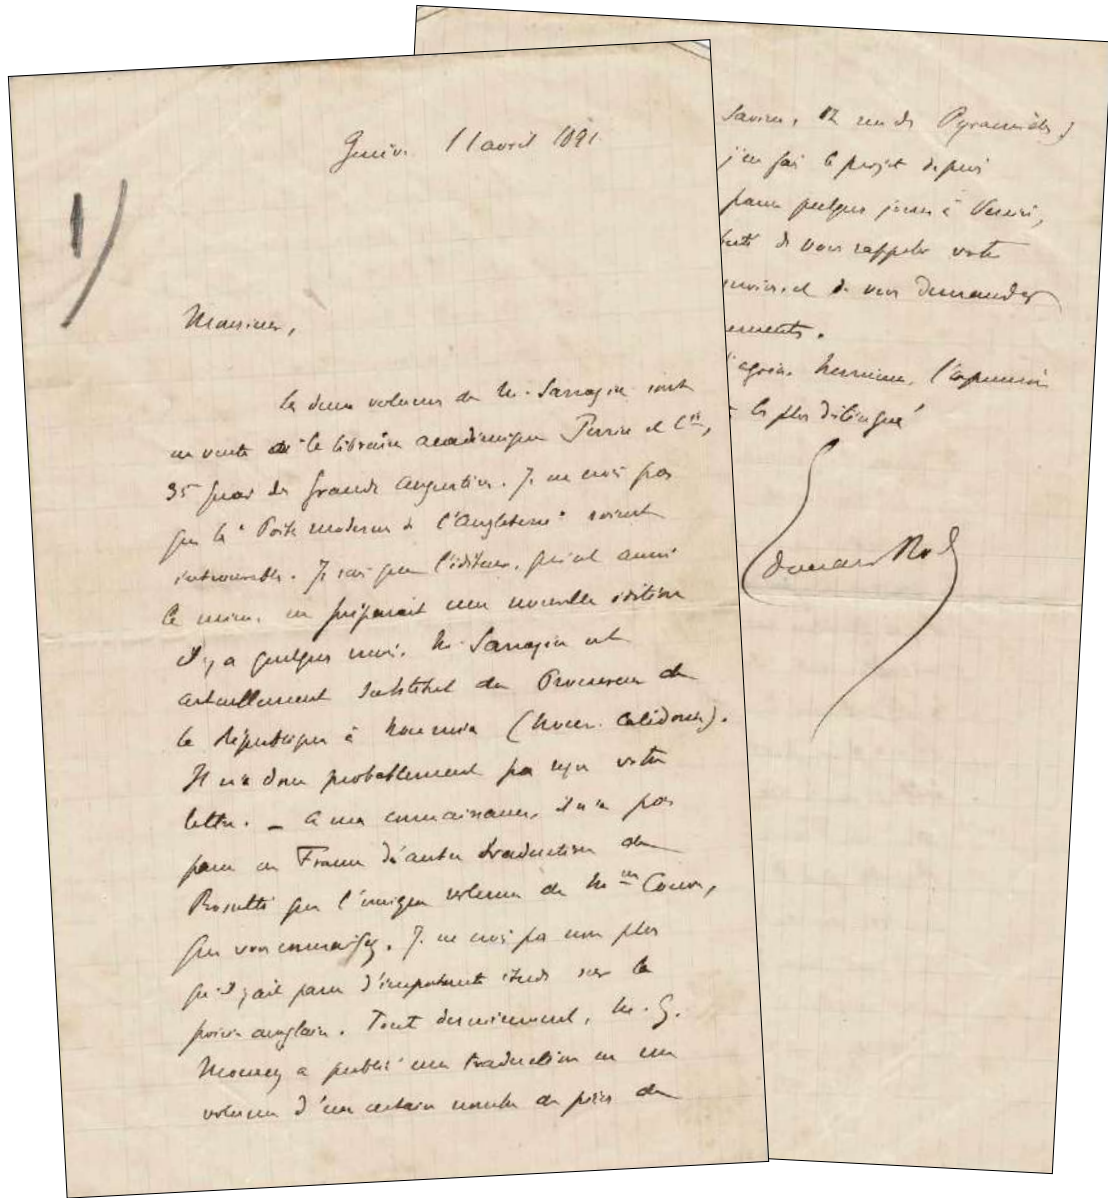 1)
Genève 11 avril 1891
Monsieur,
Les deux volumes de M. Sarrazin sont
en vente à la librairie académique Perrin et Cie,
35 quai des Grands Augustins. Je ne crois pas
que les "Poètes modernes de l'Angleterre" soient
introuvables. Je sais que l'éditeur, qui est aussi
le mien, en préparait une nouvelle édition
il y a quelques mois. M. Sarrazin est
actuellement substitut du Procureur de
la République à Nouméa (Nouv. Calédonie).
Il n'a donc probablement pas reçu votre
lettre. – A ma connaissance, il n'a pas
paru en France d'autre traduction de
Rossetti que l'unique volume de Mme Couve,
que vous connaissez. Je ne crois pas non plus
qu'il y ait paru d'importante étude sur la
poésie anglaise. Tout dernièrement, M. G.
Mourey a publié une traduction en un
volume d'un certain nombre de pièces de
Savine, 12 rue des Pyramides)
j'en fais le projet depuis
passer quelques jours à Venise,
de vous rappeler votre
et de vous demander
l'expression
les plus distingués
Edouard Rod